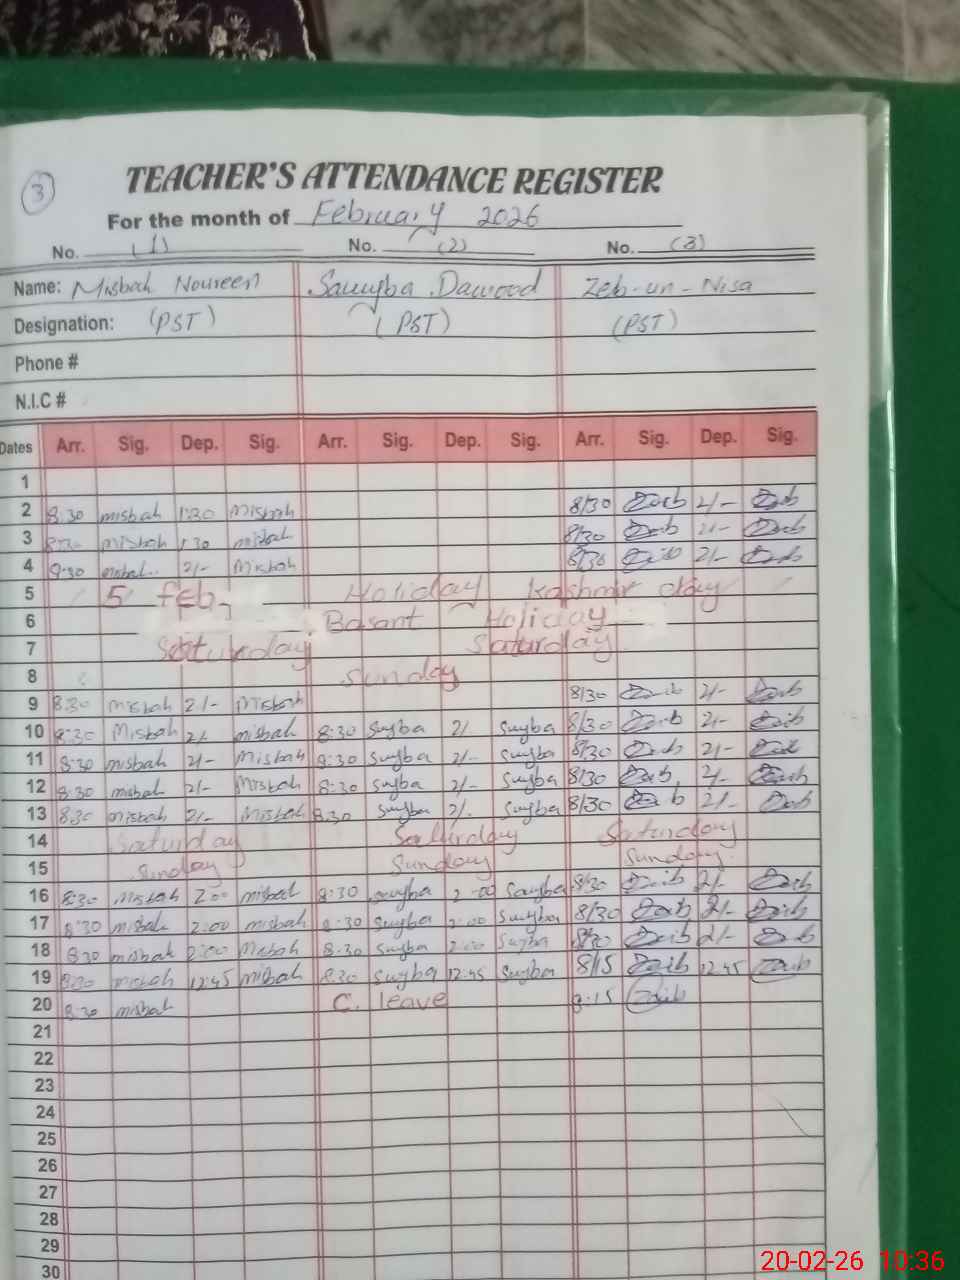 3
TEACHER'S ATTENDANCE REGISTER
For the month of February 2026
No. (1) No. (2) No. (3)
Name: Misbah Noureen Sawyba Dawood Zeb-un-Nisa
Designation: (PST) (PST) (PST)
Phone #
N.I.C #
Dates Arr. Sig. Dep. Sig. Arr. Sig. Dep. Sig. Arr. Sig. Dep. Sig.
1
2 8:30 misbah 1:30 Misbah 8/30 Zaib 2/- Zaib
3 8:30 Misbah 1:30 misbah 8/30 Zaib 2/- Zaib
4 8:30 misbah 2/- Misbah 8/30 Zaib 2/- Zaib
5 5 feb, Holiday Kashmir day
6 Basant Holiday
7 Saturday Saturday
8 Sunday
9 8:30 Misbah 2/- Misbah 8/30 Zaib 2/- Zaib
10 8:30 Misbah 2/- misbah 8:30 Suyba 2/- Suyba 8/30 Zaib 2/- Zaib
11 8:30 misbah 2/- Misbah 8:30 Suyba 2/- Suyba 8/30 Zaib 2/- Zaib
12 8:30 misbah 2/- Misbah 8:30 Suyba 2/- Suyba 8/30 Zaib 2/- Zaib
13 8:30 misbah 2/- Misbah 8:30 Suyba 2/- Suyba 8/30 Zaib 2/- Zaib
14 Saturday Saturday Saturday
15 Sunday Sunday Sunday
16 8:30 Misbah 2:00 misbah 8:30 Sawyba 2:00 Sawyba 8/30 Zaib 2/- Zaib
17 8:30 misbah 2:00 misbah 8:30 Suyba 2:00 Suyba 8/30 Zaib 2/- Zaib
18 8:30 misbah 2:00 Misbah 8:30 Suyba 2:00 Suyba 8/30 Zaib 2/- Zaib
19 8:30 misbah 12:45 misbah 8:30 Suyba 12:45 Suyba 8/15 Zaib 12:45 Zaib
20 8:30 misbah C. leave 8:15 Zaib
21
22
23
24
25
26
27
28
29
30
20-02-26 10:36